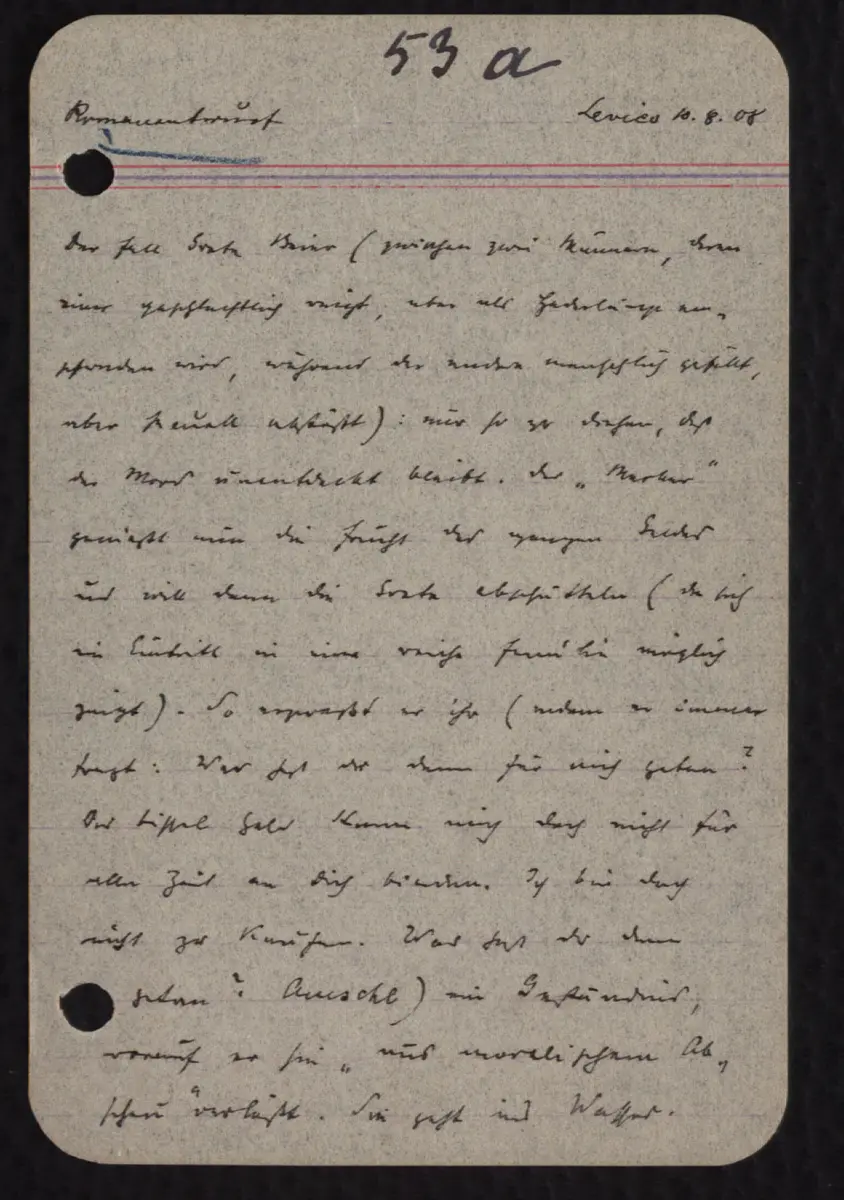 53 a
Romanentwurf Levico 10. 8. 08
Der Fall Grete Beier (zwischen zwei Männern, deren
einer geschlechtlich reizt, aber als Haderlump em-
pfunden wird, während der andere menschlich gefällt,
aber sexuell abstößt): nur so zu drehen, daß
der Mord unentdeckt bleibt. Der „Merker"
genießt nun die Frucht des ganzen Geldes
und will dann die Grete abschütteln (da sich
ein Eintritt in eine reiche Familie möglich
zeigt). So erpreßt er ihr (indem er immer
fragt: Was hast du denn für mich getan?
Das bissel Geld kann mich doch nicht für
alle Zeit an Dich binden. Ich bin doch
nicht zu kaufen. Was hast du denn
getan?) ein Geständnis,
worauf er sie „aus moralischem Ab-
scheu" verläßt. Sie geht ins Wasser.